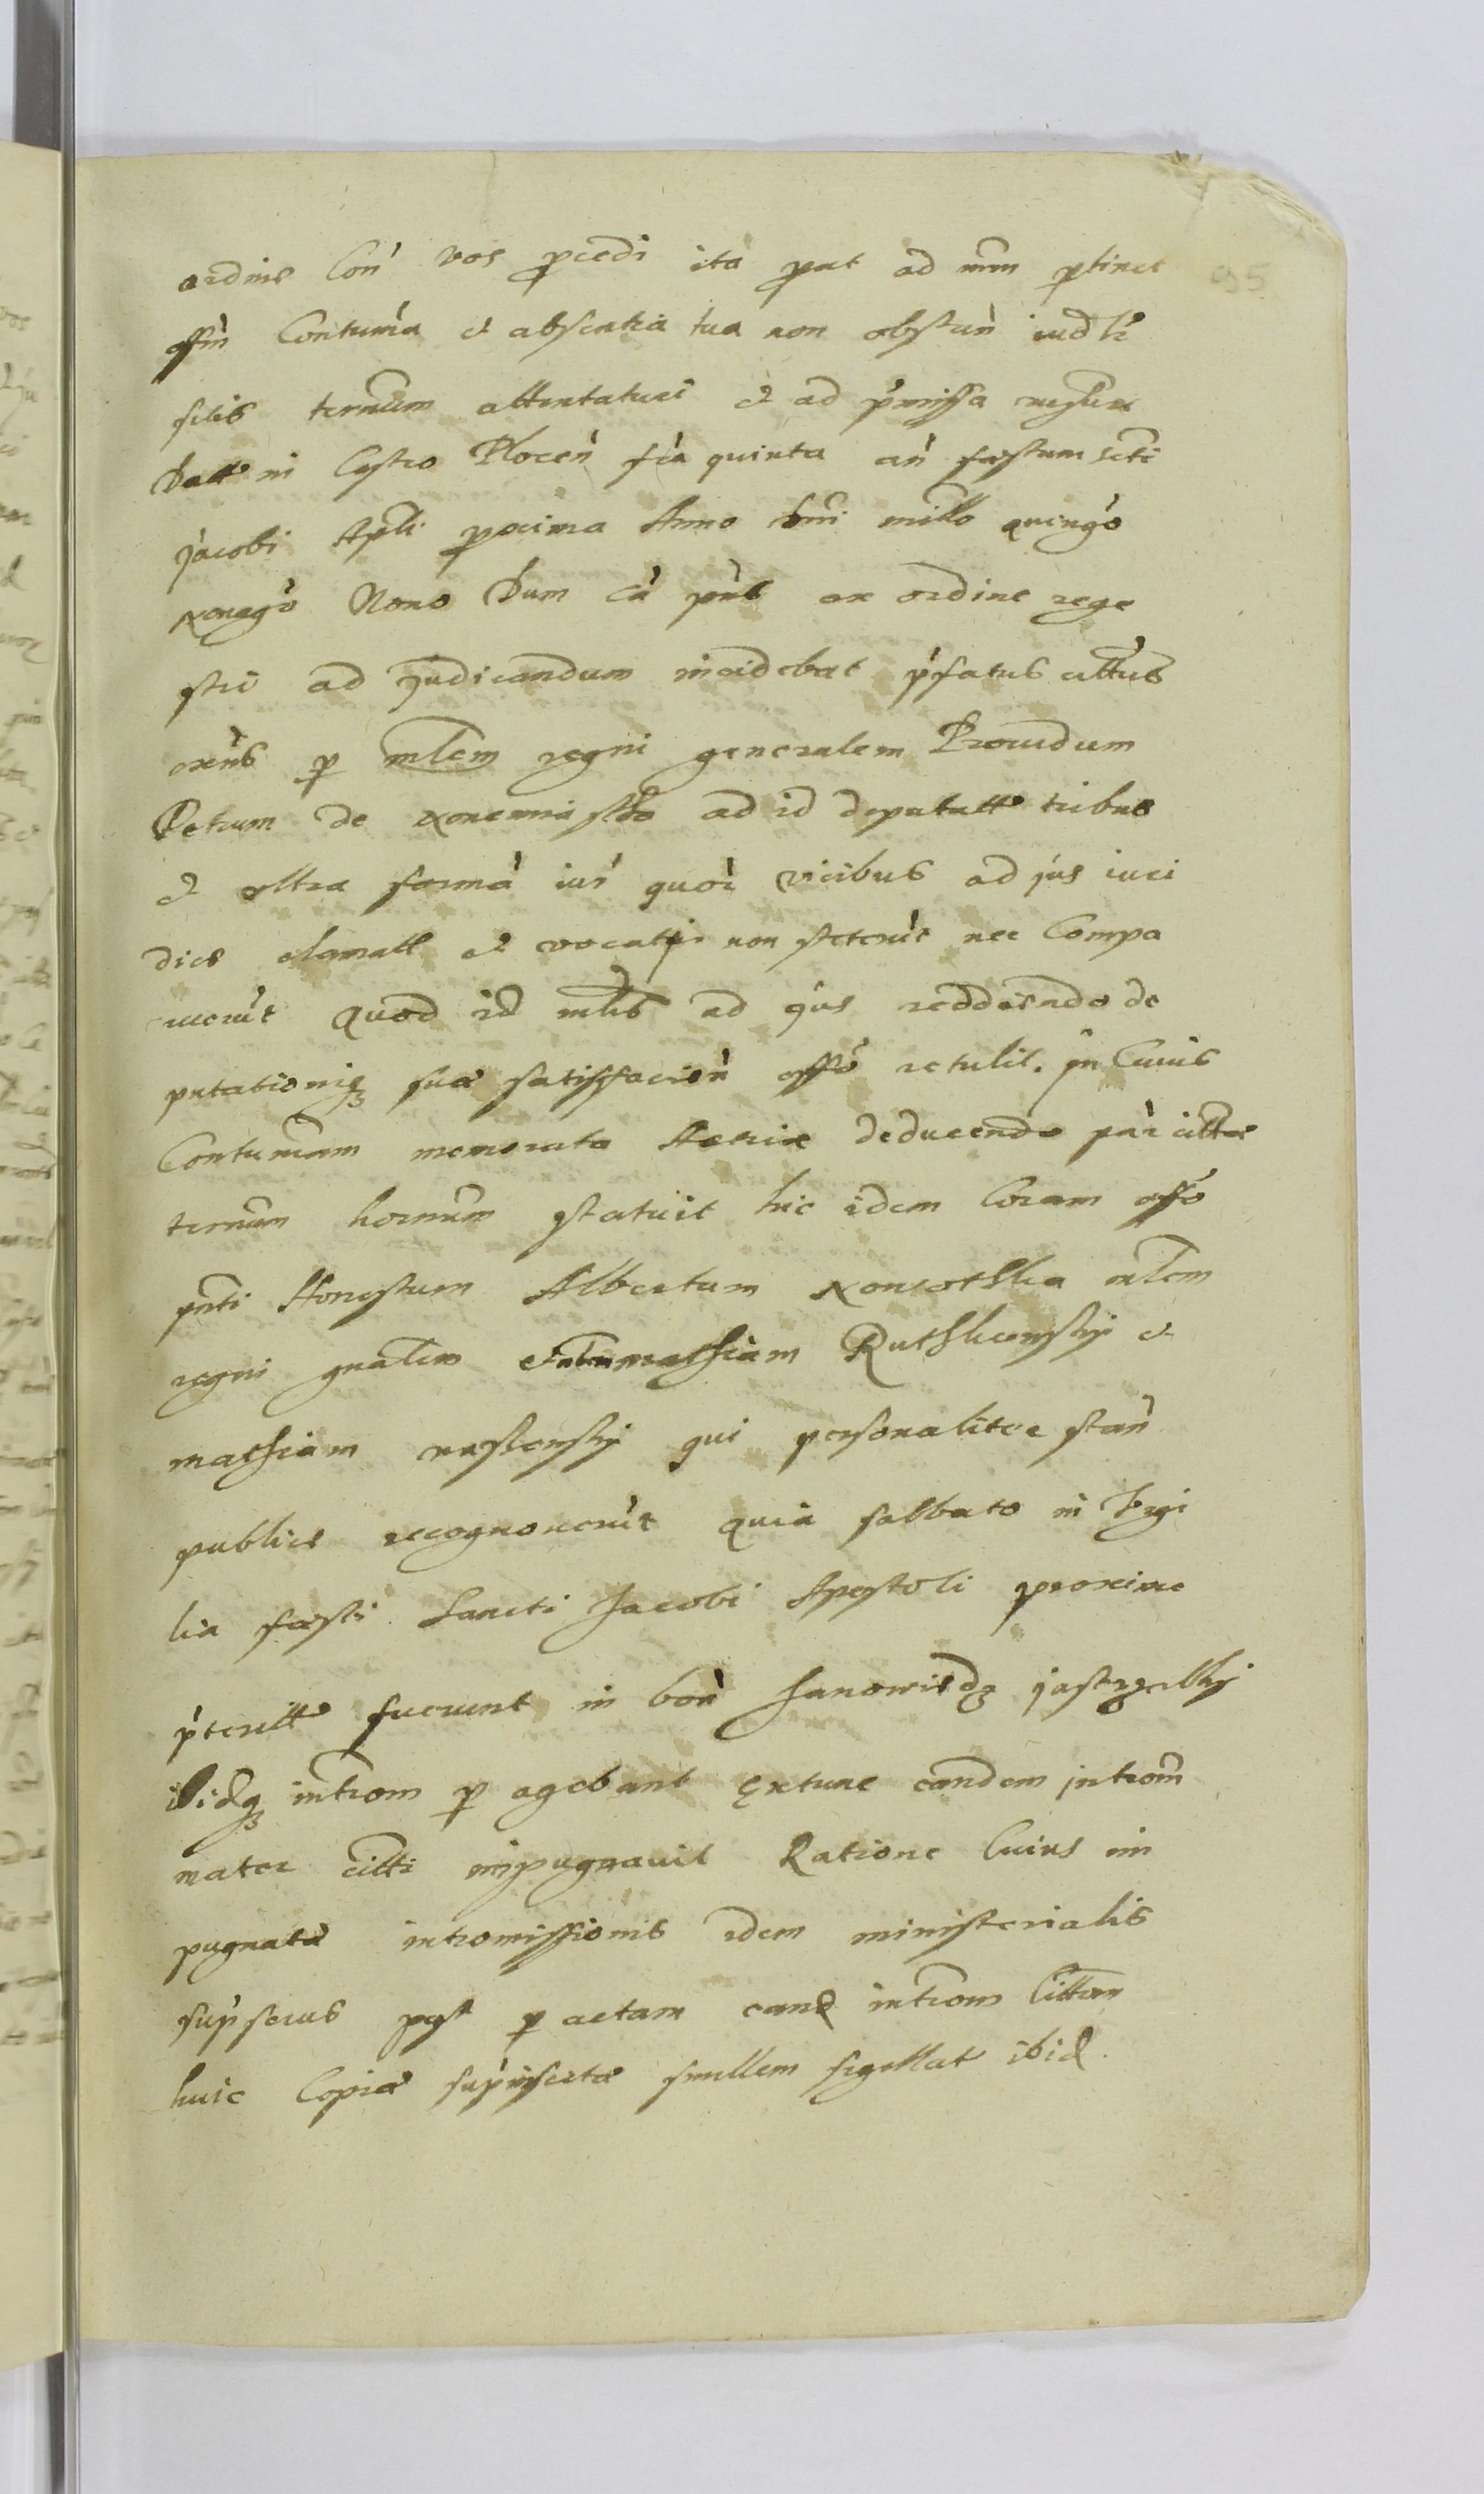 95
ordine Con vos procedi ita prout ad nrm pertinet
offm Contuma et absentia tua non obstan iudli
silis termum attentaturi et ad pmissa
Datt in Castro Plocen fia quinta an festum scti
Jacobi Apli proxima Anno Dni millo quingo
nonago Nono Dum ca pns ex ordine rege
stri ad judicandum incidebat pfatus cittus
per mlem regni generalem Providum
Petrum de ad id deputatt tribus
et ultra forma iuri quor vicibus ad jus iuri
dice clamatt et vocati non steterut nec Compa
ruerut Quod id mlis ad jus reddendo de
putationiq suæ satisfacien offo retulit. in Cuius
Contumam memorata Actrix deducendo par citta
termum hornum statuit hic idem Coram offo
pnti Honestum Albertum mlem
regni gnalem mathiam Ruthkowsky et
mathiam qui personaliter stan
publice recognoverut quia sabbato in vigi
lia festi Sancti Jacobi Apostoli proxime
pteritt fuerunt in bon Janowie dz jastrzebky
ibidq introm per agebant Extunc eandem introm
mater citti impugnavit Ratione Cuius im
pugnatæ intromissionis idem ministerialis
supserus post per actam eand introm Litton
huic Copiæ supinserta simllem sigillat ibid.